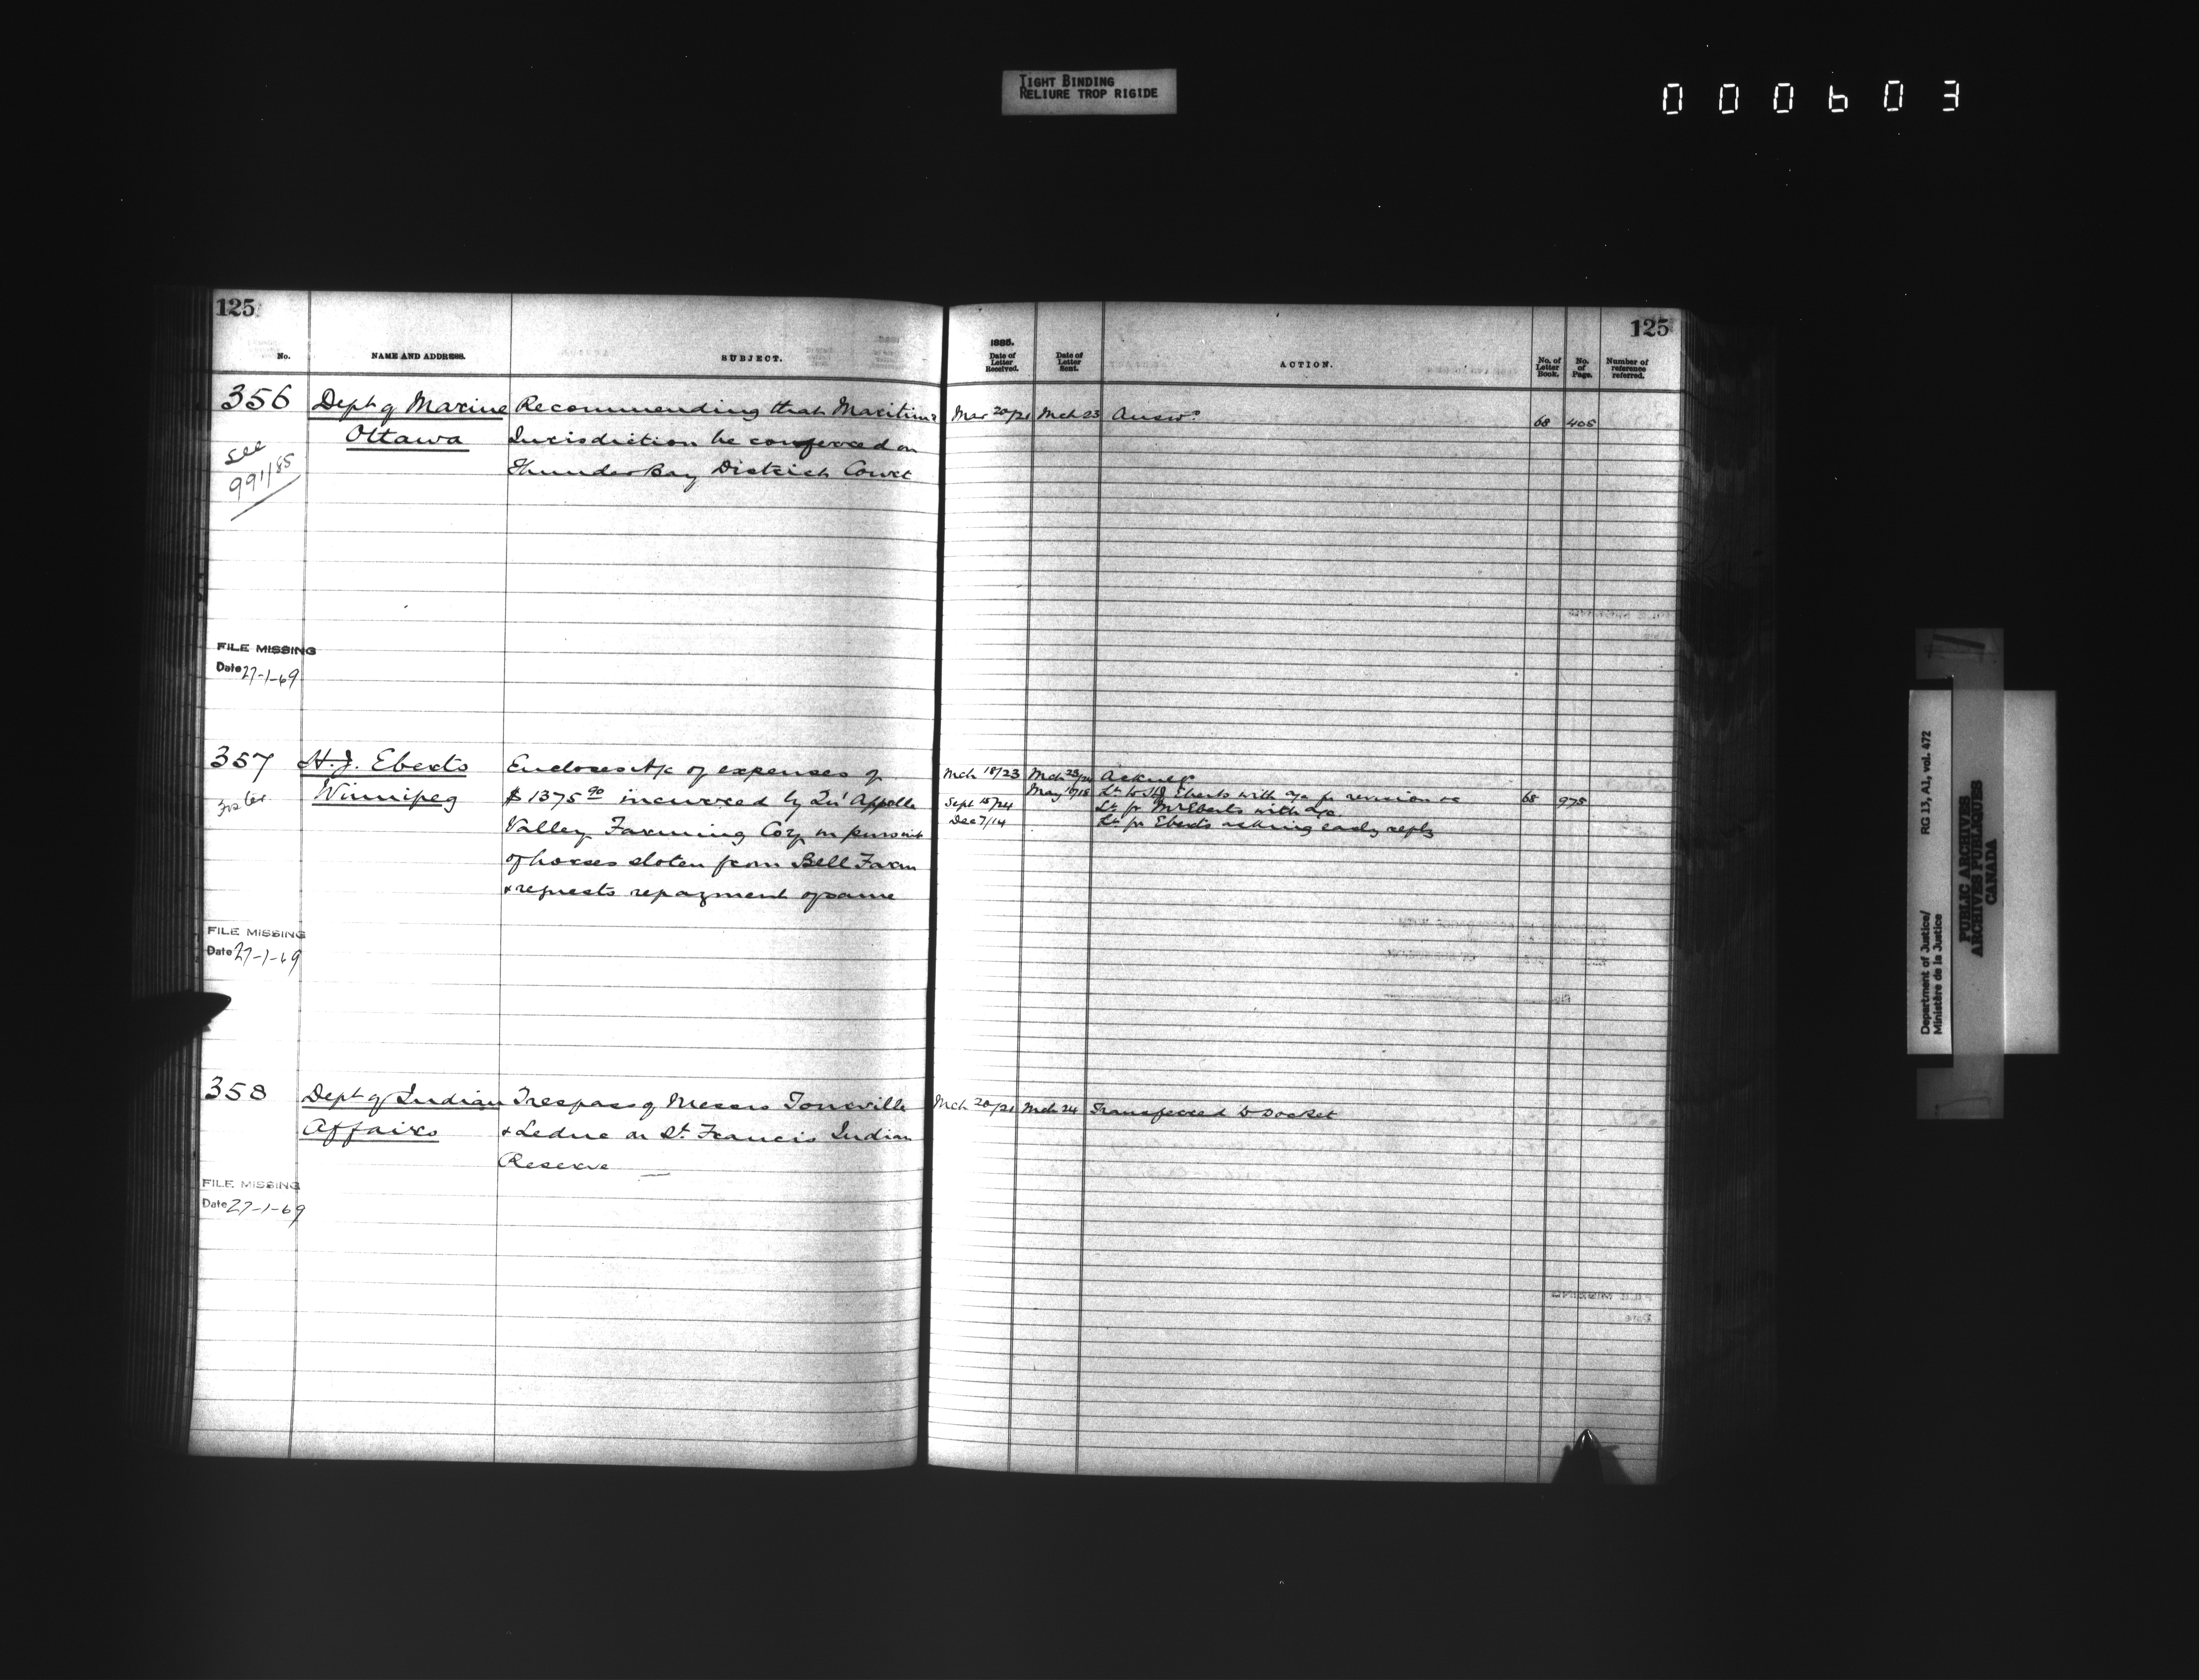 TIGHT BINDING
RELIURE TROP RIGIDE
000603
125
No. NAME AND ADDRESS. SUBJECT.
356 Dept of Marine Recommending that Maritime
Ottawa Jurisdiction be conferred on
see Thunder Bay District Court
991/85
FILE MISSING
Date 27-1-69
357 H. J. Eberts Encloses A/c of expenses of
Winnipeg $1375 90 incurred by Qu'Appelle
Valley Farming Coy in pursuit
of horses stolen from Bell Farm
& requests repayment of same
FILE MISSING
Date 27-1-69
358 Dept of Indian Trespass of Messrs Tonville
Affairs & Leduc on St. Francis Indian
Reserve
FILE MISSING
Date 27-1-69
125
1885.
Date of Letter Received. Date of Letter Sent. ACTION. No. of Letter Book. No. of Page. Number of reference referred.
Mar 20/21 Mch 23 Answd 68 405
Mch 18/23 Mch 23/24 Acknd
May Lr to H J Eberts with a/c for revision 68 975
Sept 15/24 Lr fr Mr Eberts with a/c
Dec 7/14 Lr fr Eberts asking early reply
Mch 20/21 Mch 24 Transferred to Docket
Department of Justice/ RG 13, A1, vol. 472
Ministère de la Justice
PUBLIC ARCHIVES
ARCHIVES PUBLIQUES
CANADA